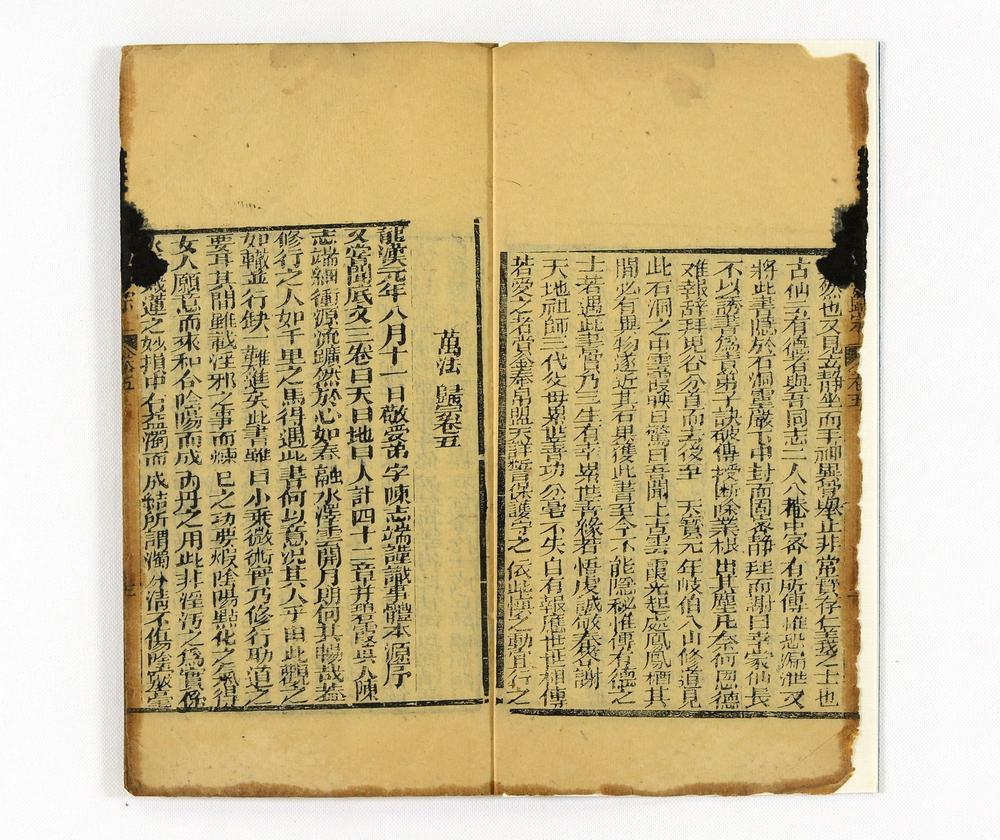 然也又見玄靜坐而干神異骨舉止非常實存仁義之士也
古仙云有德者與吾同志二人入菴中密有所傳惟恐漏泄又
將此書隱於石洞靈巖下中封而固密靜拜而謝曰幸蒙仙長
不以誘書為責弟子訣破傳授斷除業根出其塵凡奈何恩德
难報辞拜見谷分首而去後至天寶元年岐伯入山修道見
此石洞之中雲霞映日驚曰吾聞上古雲霞光起處鳳凰栖其
間必有異物遂近其石果獲此書至今不能隱秘惟傳有德之
士若遇此書實乃三生有幸累世善緣若悟虔誠破券谷謝
天地祖師三代父母累世善功分毫不失自有報應世世相傳
若愛之者賞金奉帛盟天詳誓保護守之依此慎之動宜行之
萬法歸宗卷五
龍漢元年八月十一日敬愛弟字陳志端謹識事體本源序
又嘗聞底文三卷曰天曰地曰人計四十二章并碧霞真人陳
志端細衝源流躍然於心如春融水澤雲開月朗何其暢哉蓋
修行之人如千里之馬得遇此書何以意況其人乎由此觀之
如轍並行缺一難進矣此書雖曰小乘微術實乃修行助道之
要耳其間雖載淫邪之事而煉己之功要煅陰陽點化之氣得
女人願意而來和合陰陽而成內丹之用此非淫污之為實保
蓮之妙指中有盃濁而成結所謂濁分清不傷陰騭